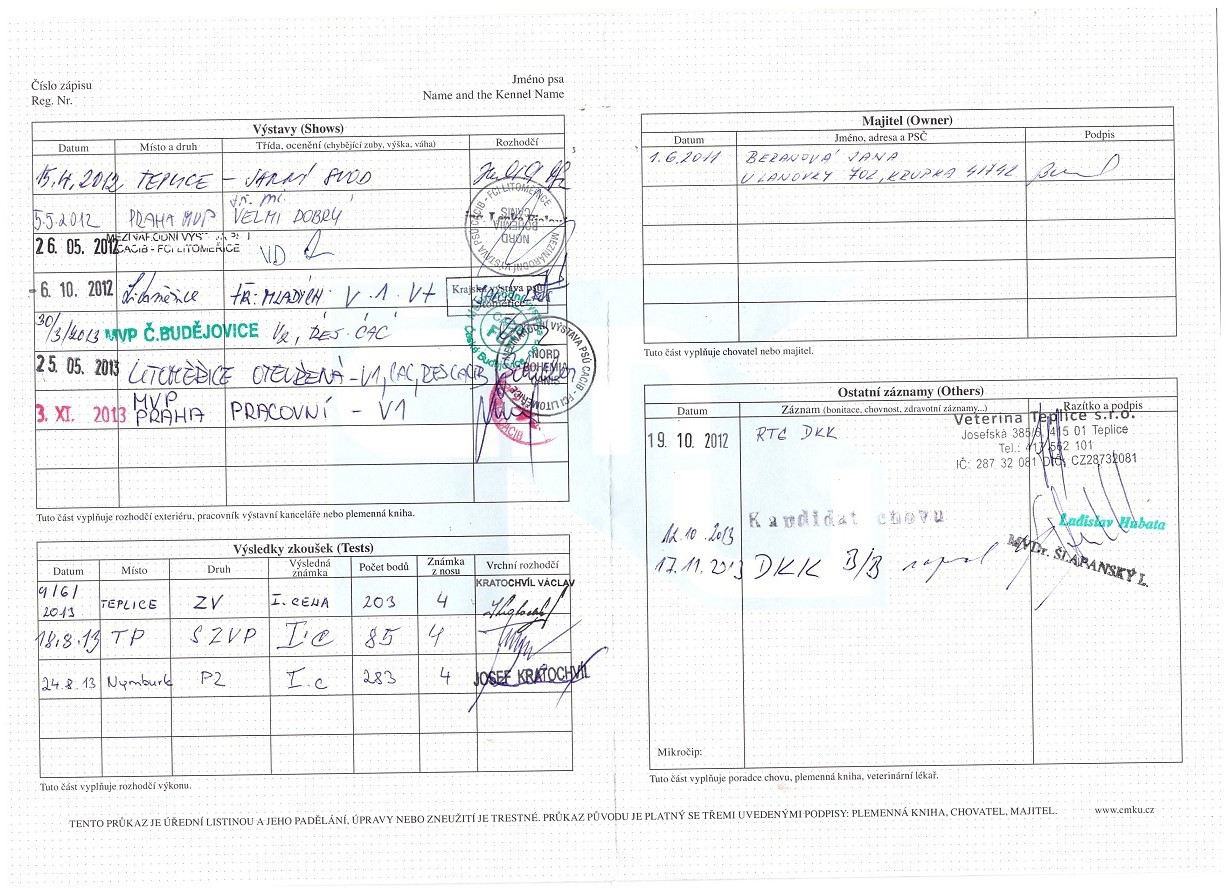 Číslo zápisu
Reg. Nr.
Jméno psa
Name and the Kennel Name
Výstavy (Shows)
Datum Místo a druh Třída, ocenění (chybějící zuby, výška, váha) Rozhodčí
15.4.2012 TEPLICE - JARNÍ SVOD
5.5.2012 PRAHA MVP VELMI DOBRÝ
26. 05. 2012 CACIB - FCI LITOMĚŘICE VD 2
-6. 10. 2012 Litoměřice TŘ. MLADÝCH V 1 VT
Krajská výstava psů
Litoměřice
30/3/2013 MVP Č.BUDĚJOVICE V2, RES CAC
25. 05. 2013 LITOMĚŘICE OTEVŘENÁ - V1, CAC, RES CACIB
NORD
BOHEMIA
CANIS
MEZINÁRODNÍ VÝSTAVA PSŮ CACIB - FCI LITOMĚŘICE
3. XI. 2013 MVP PRAHA PRACOVNÍ - V1
Tuto část vyplňuje rozhodčí exteriéru, pracovník výstavní kanceláře nebo plemenná kniha.
Výsledky zkoušek (Tests)
Datum Místo Druh Výsledná známka Počet bodů Známka z nosu Vrchní rozhodčí
9/6/2013 TEPLICE ZV I. CENA 203 4 KRATOCHVÍL VÁCLAV
18.8.13 TP SZVP I.c 85 4
24.8.13 Nymburk PZ I.c 283 4 JOSEF KRATOCHVÍL
Tuto část vyplňuje rozhodčí výkonu.
Majitel (Owner)
Datum Jméno, adresa a PSČ Podpis
1.6.2011 BERANOVÁ JANA
V LANOVKY 702, KRUPKA 41742
Tuto část vyplňuje chovatel nebo majitel.
Ostatní záznamy (Others)
Datum Záznam (bonitace, chovnost, zdravotní záznamy...) Razítko a podpis
Veterina Teplice s.r.o.
Josefská 385/6, 415 01 Teplice
Tel.: 417 552 101
IČ: 287 32 081 DIČ: CZ28732081
19. 10. 2012 RTG DKK
12.10.2013 Kandidát chovu
Ladislav Hubata
17.11.2013 DKK B/B
MVDr. ŠLAPANSKÝ L.
Mikročip:
Tuto část vyplňuje poradce chovu, plemenná kniha, veterinární lékař.
TENTO PRŮKAZ JE ÚŘEDNÍ LISTINOU A JEHO PADĚLÁNÍ, ÚPRAVY NEBO ZNEUŽITÍ JE TRESTNÉ. PRŮKAZ PŮVODU JE PLATNÝ SE TŘEMI UVEDENÝMI PODPISY: PLEMENNÁ KNIHA, CHOVATEL, MAJITEL.
www.cmku.cz